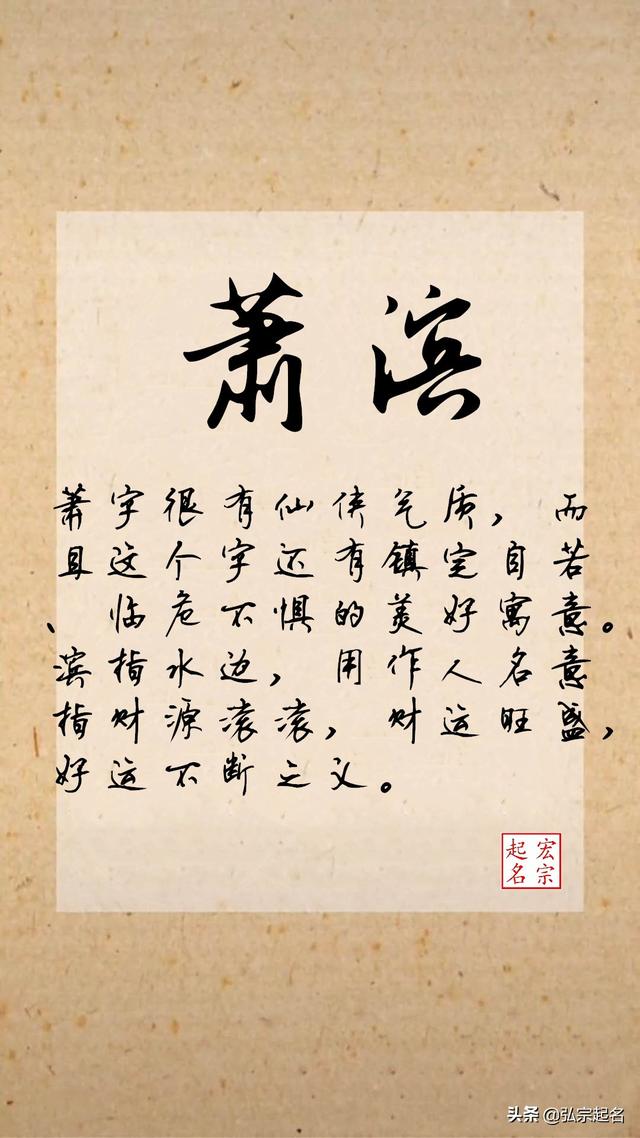 萧滨
萧字很有仙侠气质，而
且这个字还有镇定自若
、临危不惧的美好寓意。
滨指水边，用作人名意
指财源滚滚，财运旺盛，
好运不断之义。
宏宗
起名
头条 @弘宗起名